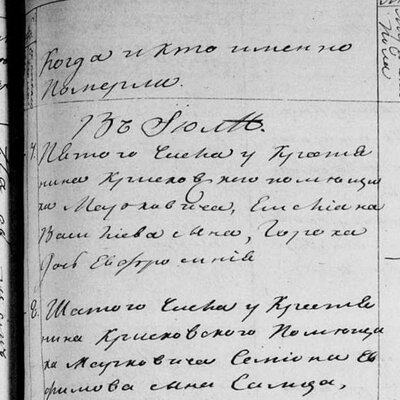 Когда и кто именно
Померли.
Въ Іюлѣ.
7. Пятого числа у Крестья
нина Крисковского помещи
ка Марковича, Емелiана
Василиева сына, Гороха
дочь Евфросинія
8. Шатого числа у Крестья
нина Крисковского Помещи
ка Марковича Семiона Еѳ
фимова сына